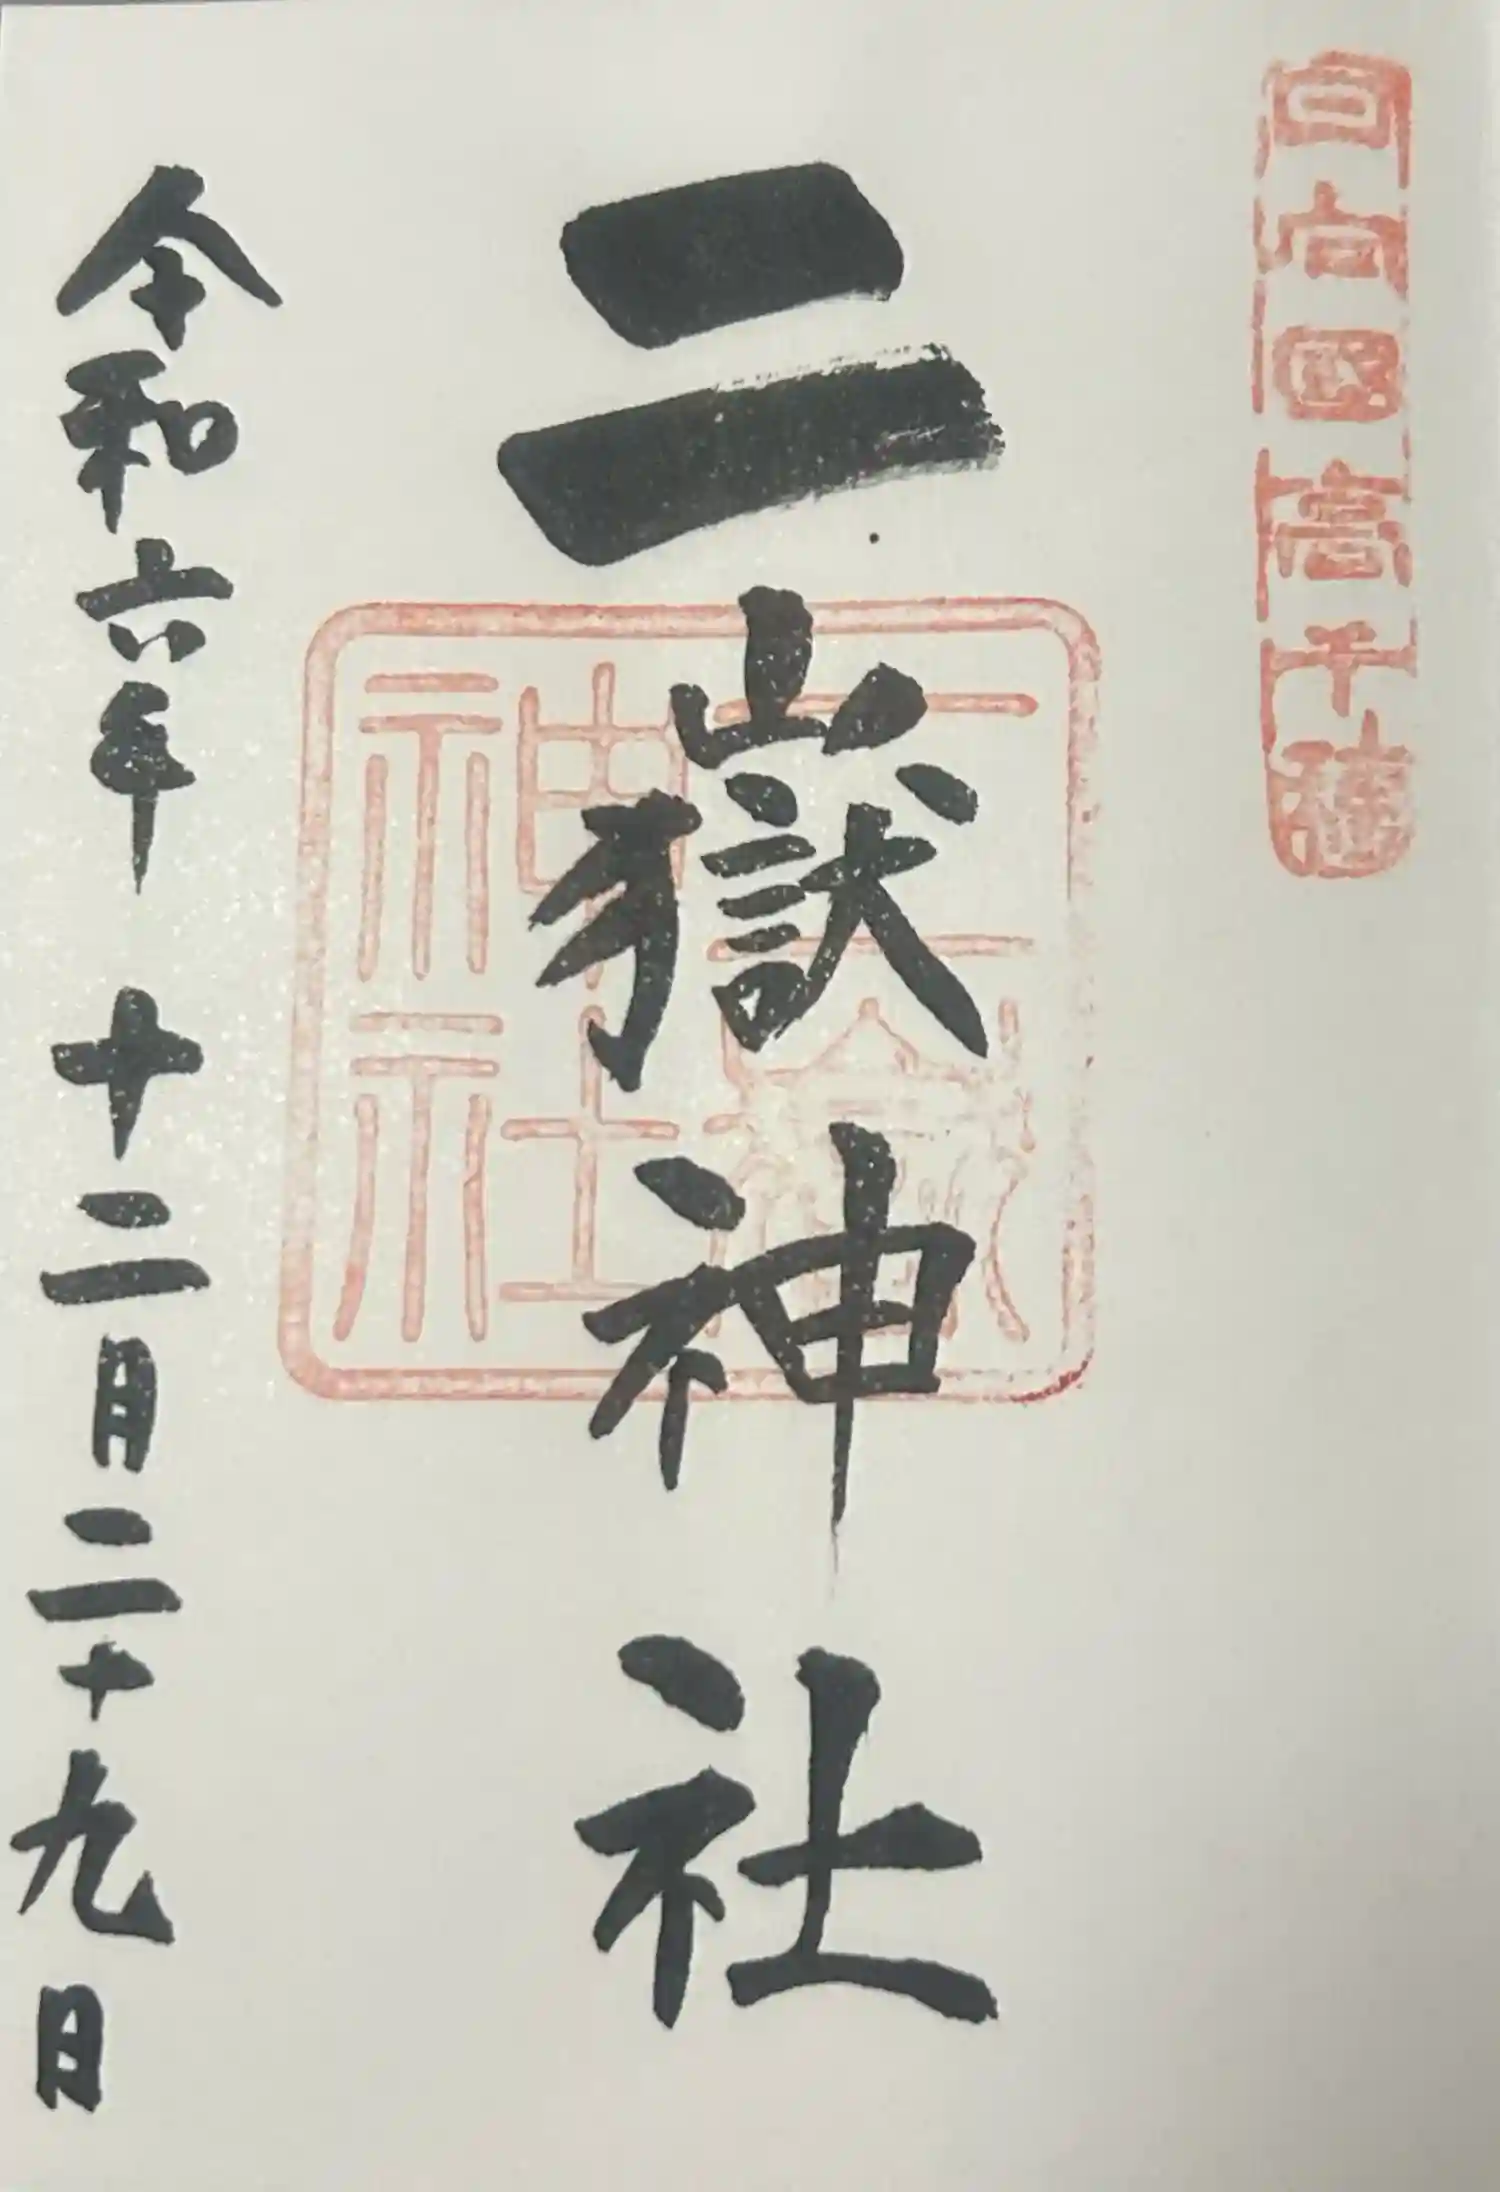 日向國高千穂
二嶽神社
二嶽神社
令和六年 十二月二十九日